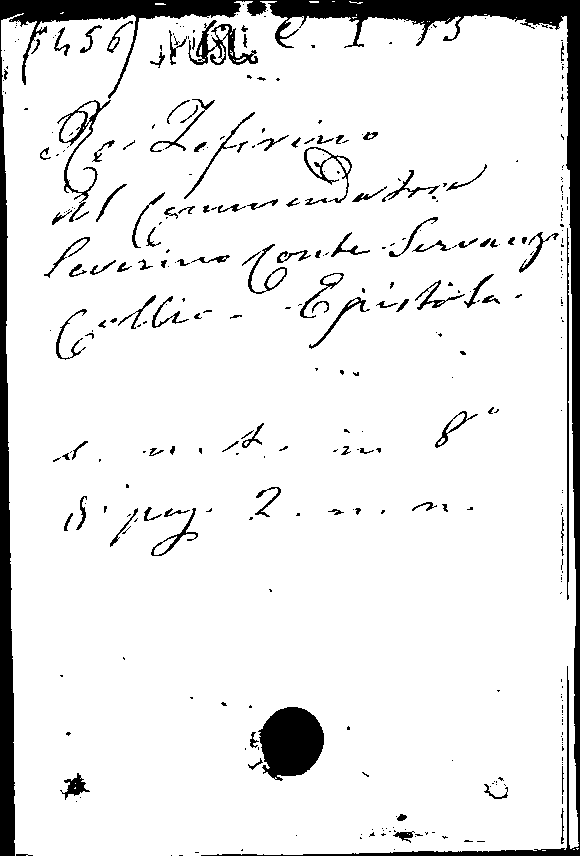 (5456) MISC. C. I. 13
Re Zefirino
Al Commendatore
Severino Conte Servanzi
Collio - Epistola.
s. n. t. in 8°
di pag. 2. n. n.